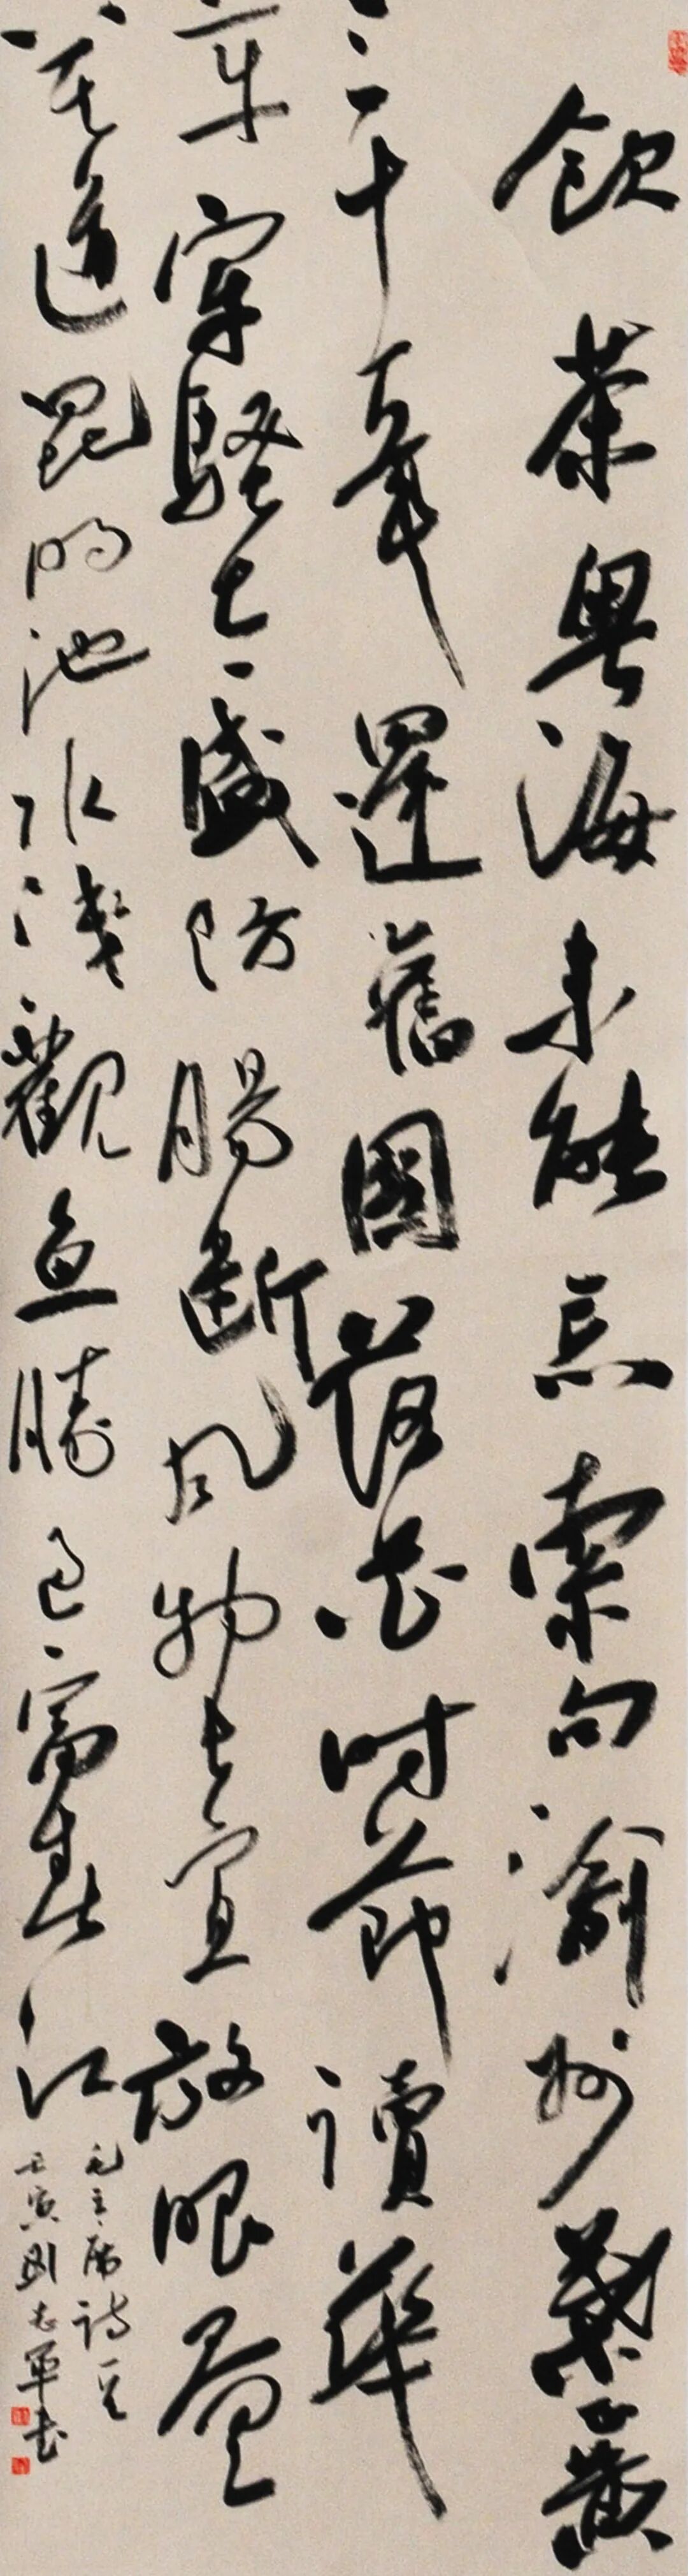 飲茶粵海未能忘索句渝州葉正黃
三十一年還舊國落花時節讀華
章牢騷太盛防腸斷風物長宜放眼量
莫道昆明池水淺觀魚勝過富春江
毛主席詩一首
壬寅刘志軍書